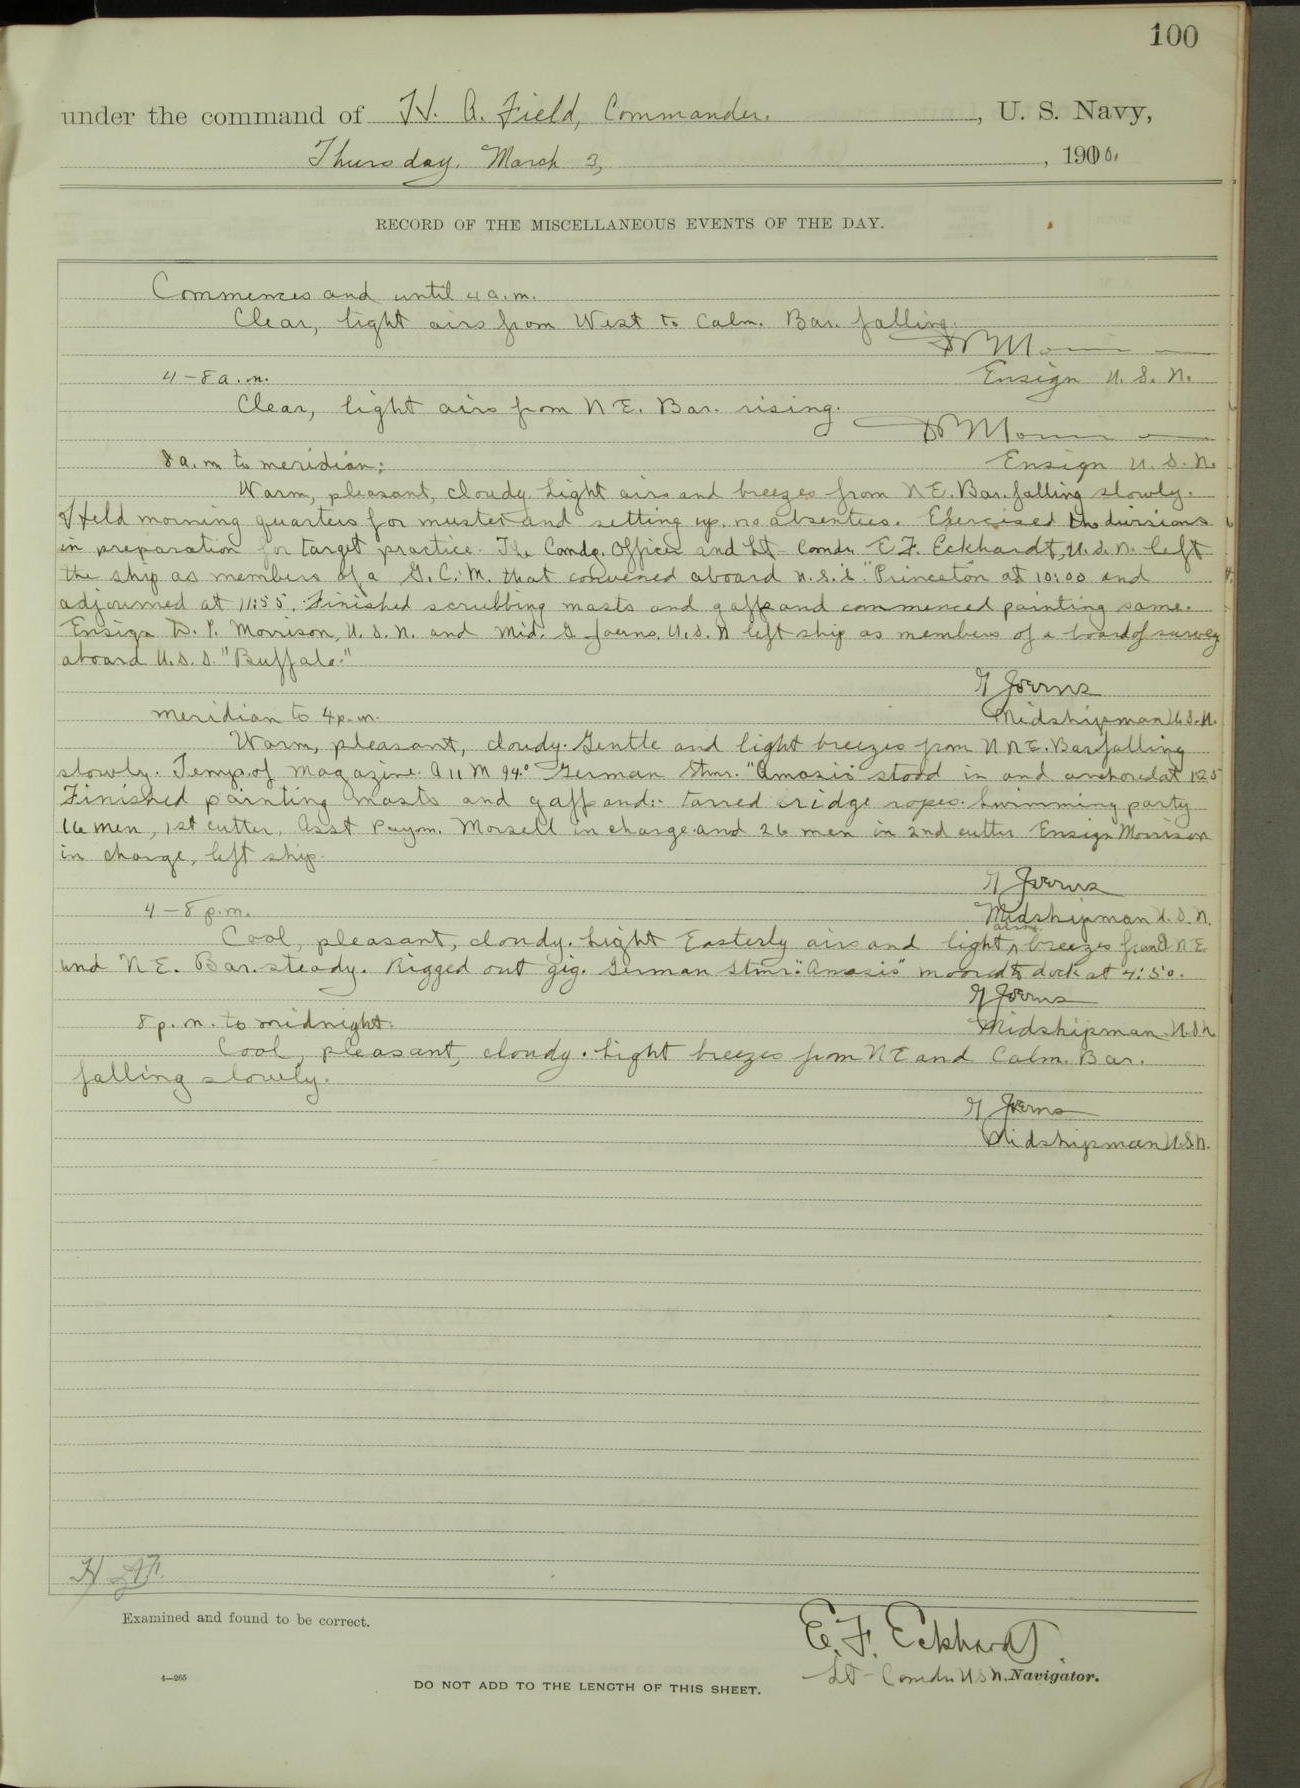 100
under the command of H. A. Field, Commander. , U. S. Navy,
Thursday, March 3, , 1910.
RECORD OF THE MISCELLANEOUS EVENTS OF THE DAY.
Commences and until 4 a.m.
Clear, light airs from West to Calm. Bar. falling.
4-8 a.m. Ensign U. S. N.
Clear, light airs from NE. Bar. rising.
8 a.m. to meridian: Ensign U. S. N.
Warm, pleasant, cloudy. Light airs and breezes from NE. Bar. falling slowly.
Held morning quarters for muster and setting up, no absentees. Exercised the divisions
in preparation for target practice. The Comdg. Officer and Lt-Comdr. E F. Eckhardt, U. S. N. left
the ship as members of a G. C. M. that convened aboard U.S.S. "Princeton" at 10:00 and
adjourned at 11:55. Finished scrubbing masts and gaffs and commenced painting same.
Ensign D. P. Morrison, U. S. N. and Mid. G. Joerns, U. S. N left ship as members of a board of survey
aboard U. S. S. "Buffalo."
G Joerns
meridian to 4 p.m. Midshipman U.S.N.
Warm, pleasant, cloudy. Gentle and light breezes from NNE. Bar falling
slowly. Temp. of magazine A 11 M 94° German Stmr. "Amasis" stood in and anchored at 1:25
Finished painting masts and gaffs and tarred ridge ropes. Swimming party
16 men, 1st cutter, Asst Paym. Morsell in charge and 26 men in 2nd cutter Ensign Morrison
in charge, left ship.
G Joerns
4-8 p.m. Midshipman U. S. N.
Cool, pleasant, cloudy. Light Easterly airs and light airs breezes from NE
and NE. Bar. steady. Rigged out gig. German Stmr. "Amasis" moored to dock at 4:50.
G Joerns
8 p. m. to midnight. Midshipman U.S.N
Cool, pleasant, cloudy. Light breezes from NE and Calm. Bar.
falling slowly.
G Joerns
Midshipman U.S.N.
H A F.
Examined and found to be correct.
E. F. Eckhardt
Lt-Comdr. U S N. Navigator.
4—265
DO NOT ADD TO THE LENGTH OF THIS SHEET.